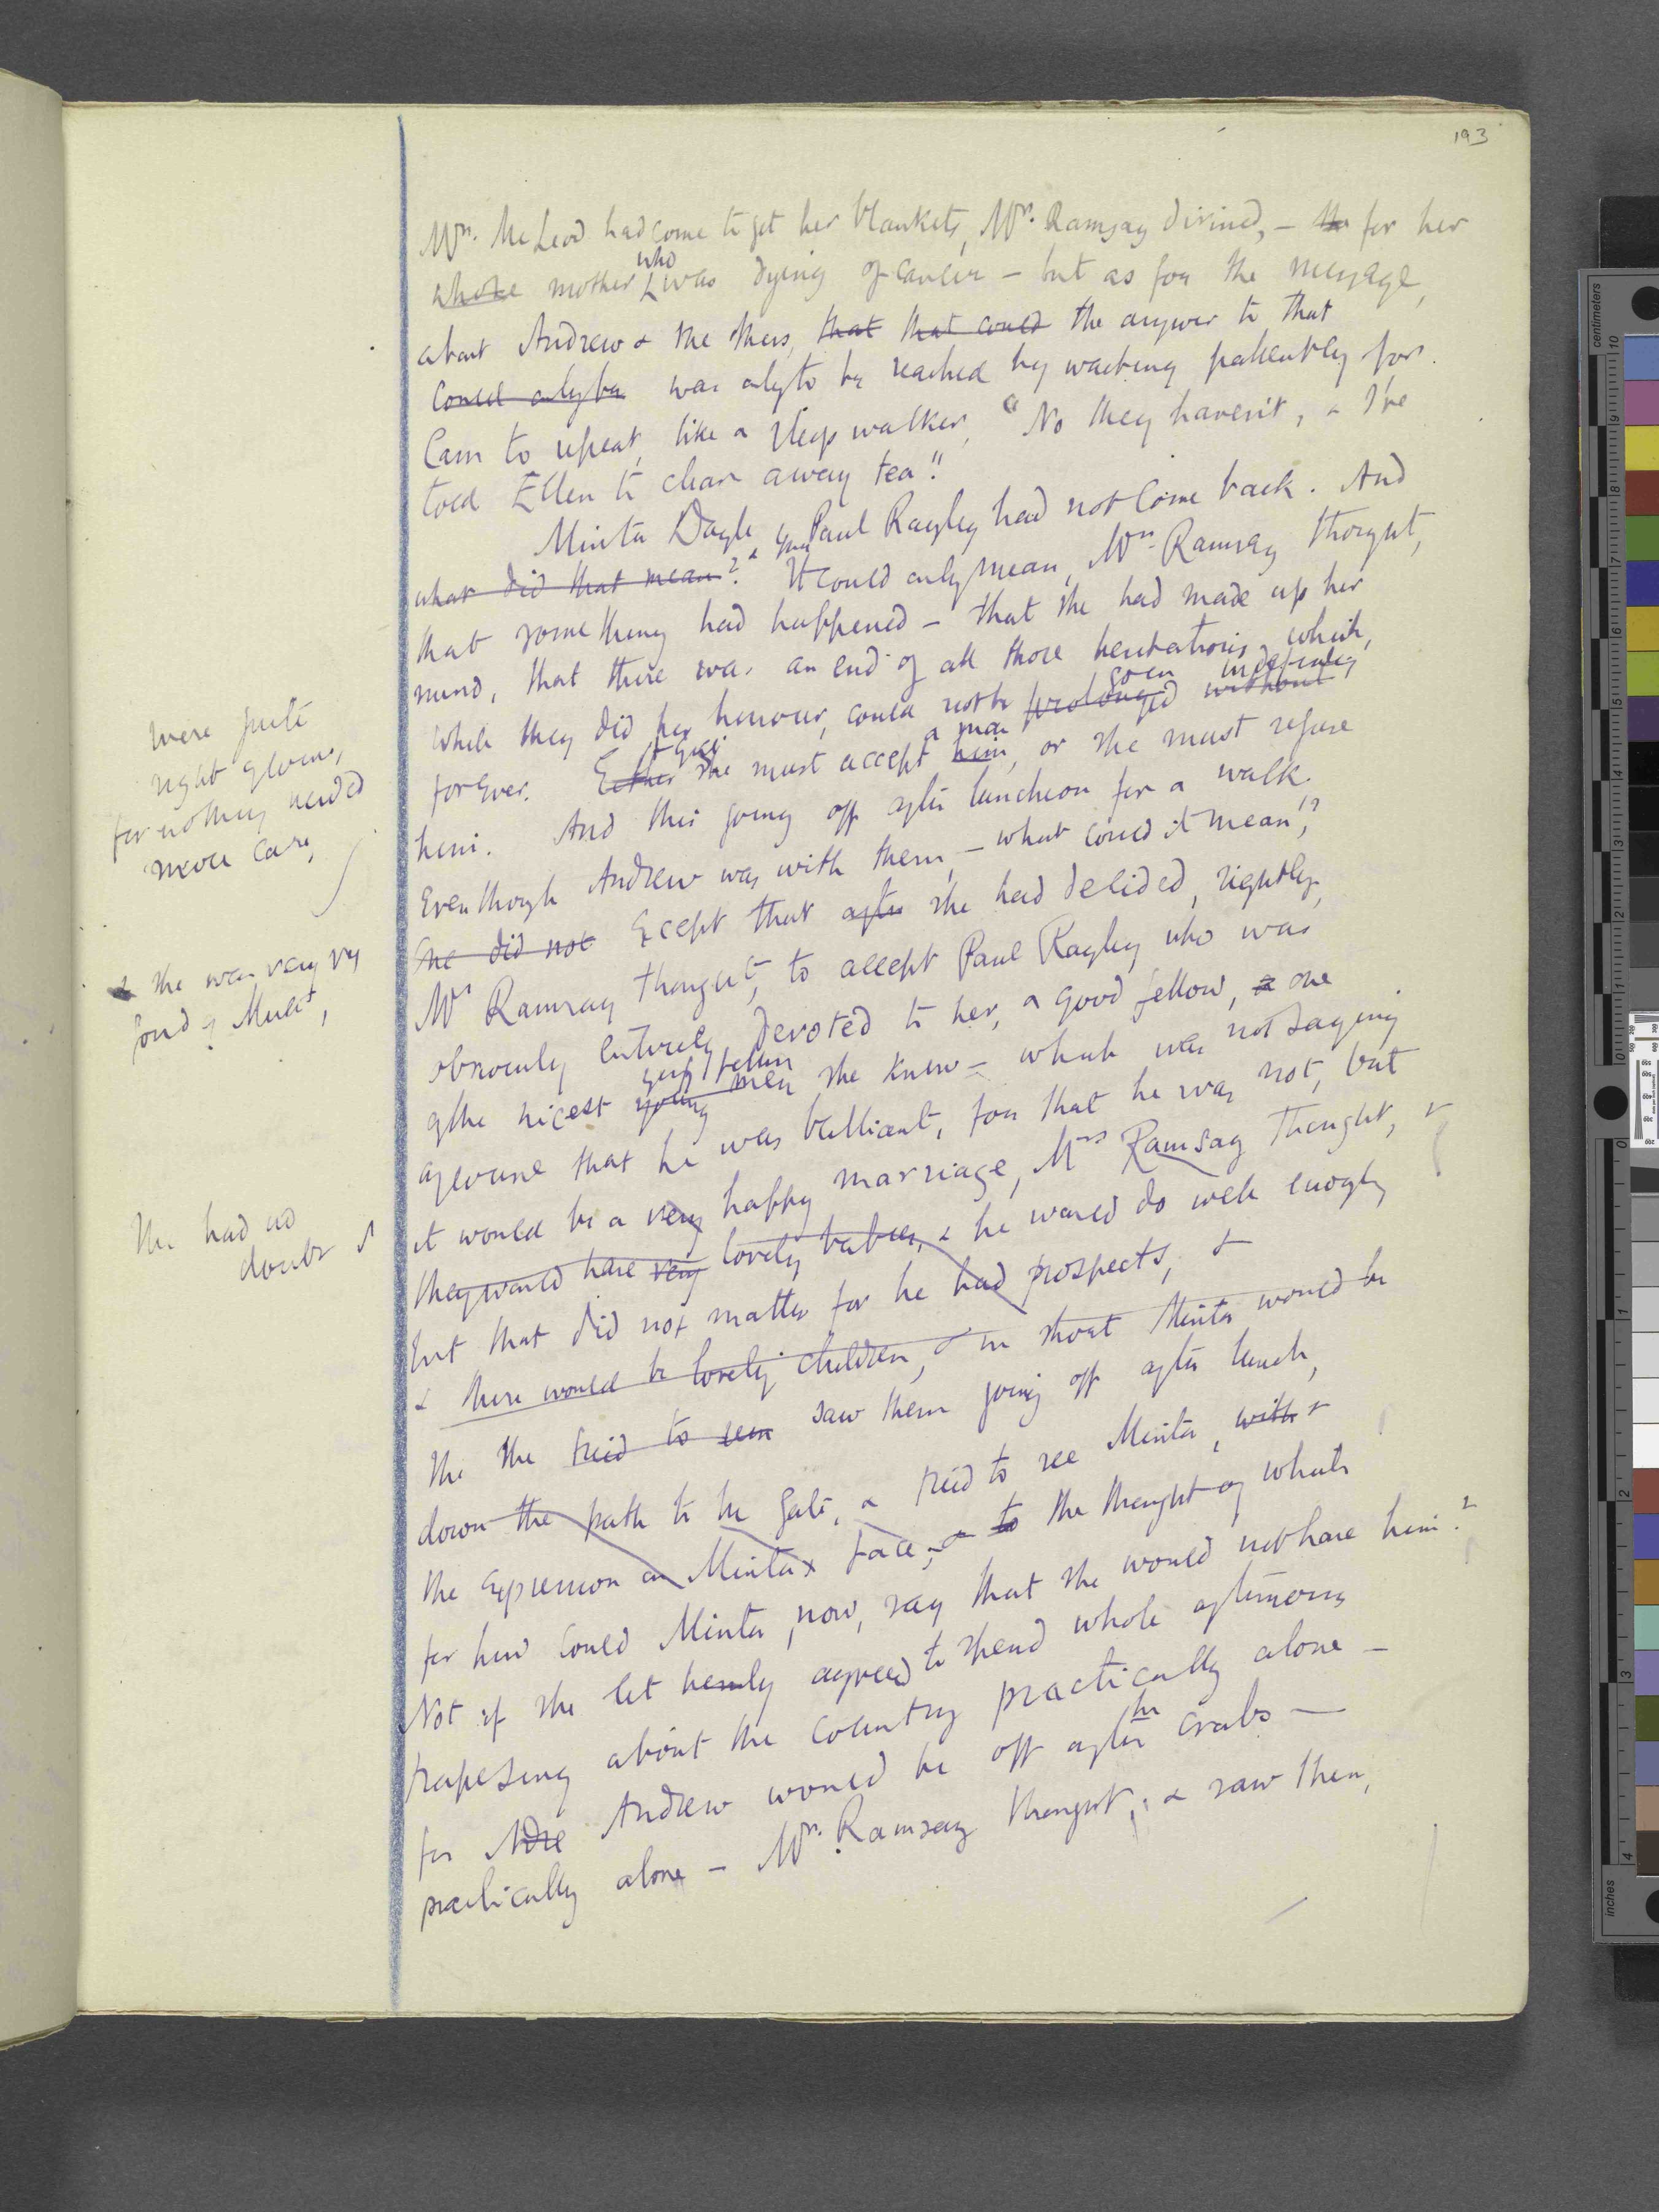 193
Mrs. McLeod had come to get her blankets, Mrs. Ramsay divined, - the for her
who
whose mother was dying of cancer - but as for the message,
about Andrew & the others, that that could the answer to that
could only be was only to be reached by waiting patiently for
Cam to repeat, like a sleep walker, "No they haven't, & I've
told Ellen to clear away tea."
Minta Doyle & Paul Rayley had not come back. And
what did that mean? It could only mean, Mrs. Ramsay thought,
that something had happened - that she had made up her
mind, that there was an end of all those hesitations, which,
go on indefinitely
while they did her honour, could not be prolonged without
a man
for ever. Either she must accept him, or she must refuse
him. And this going off after luncheon for a walk,
even though Andrew was with them, - what could it mean,?
She did not Except that after she had decided, rightly,
Mrs Ramsay thought, to accept Paul Rayley who was
obviously entirely devoted to her, a good fellow, & one
of the nicest young men she knew - which was not saying
of course that he was brilliant, for that he was not, but
it would be a very happy marriage, Mrs Ramsay thought, &
they would have very lovely babies, & he would do well enough,
but that did not matter for he had prospects, &
& there would be lovely children, & in short Minta would be
She She tried to see saw them going off after lunch,
down the path to the gate, & tried to see Minta, with &
the expression on Mintas face, & to the thought of what
for how could Minta, now, say that she would not have him?
Not if she let agreed to spend whole afternoons
trapesing about the country practically alone -
the
for Andrew would be off after crabs -
practically alone - Mrs. Ramsay thought, & saw them,
were quite
right
for nothing needed
more care,
& she was very very
fond of Minta,
She had no
doubt
centimeters
inches